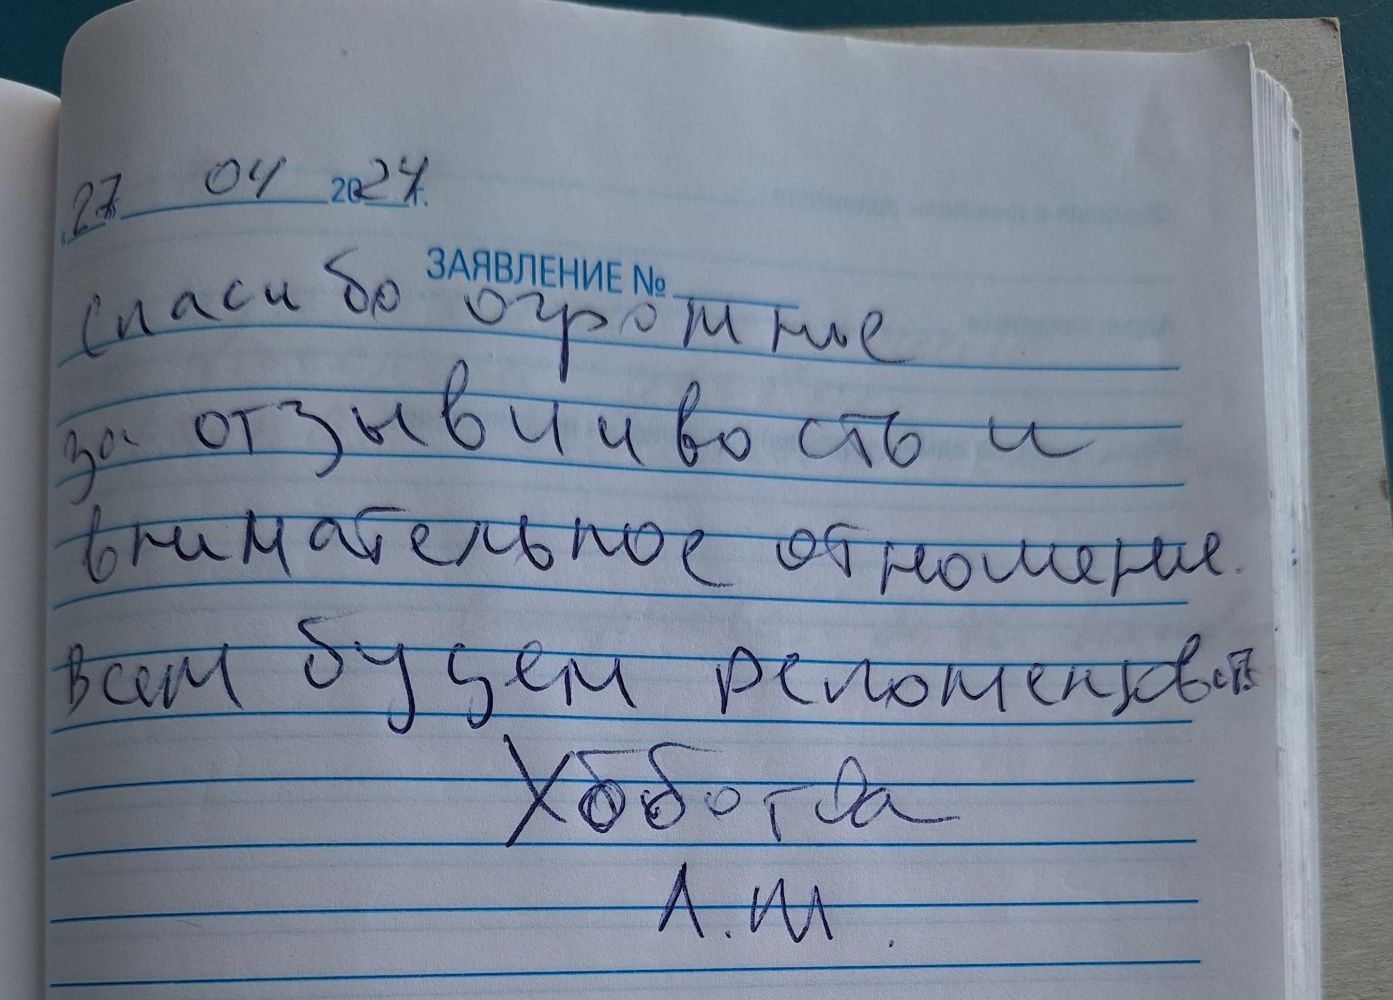 27 04 2024г.
ЗАЯВЛЕНИЕ №
Спасибо огромные
за отзывчивость и
внимательное отношение.
Всем будем рекомендоват.
Л.М.